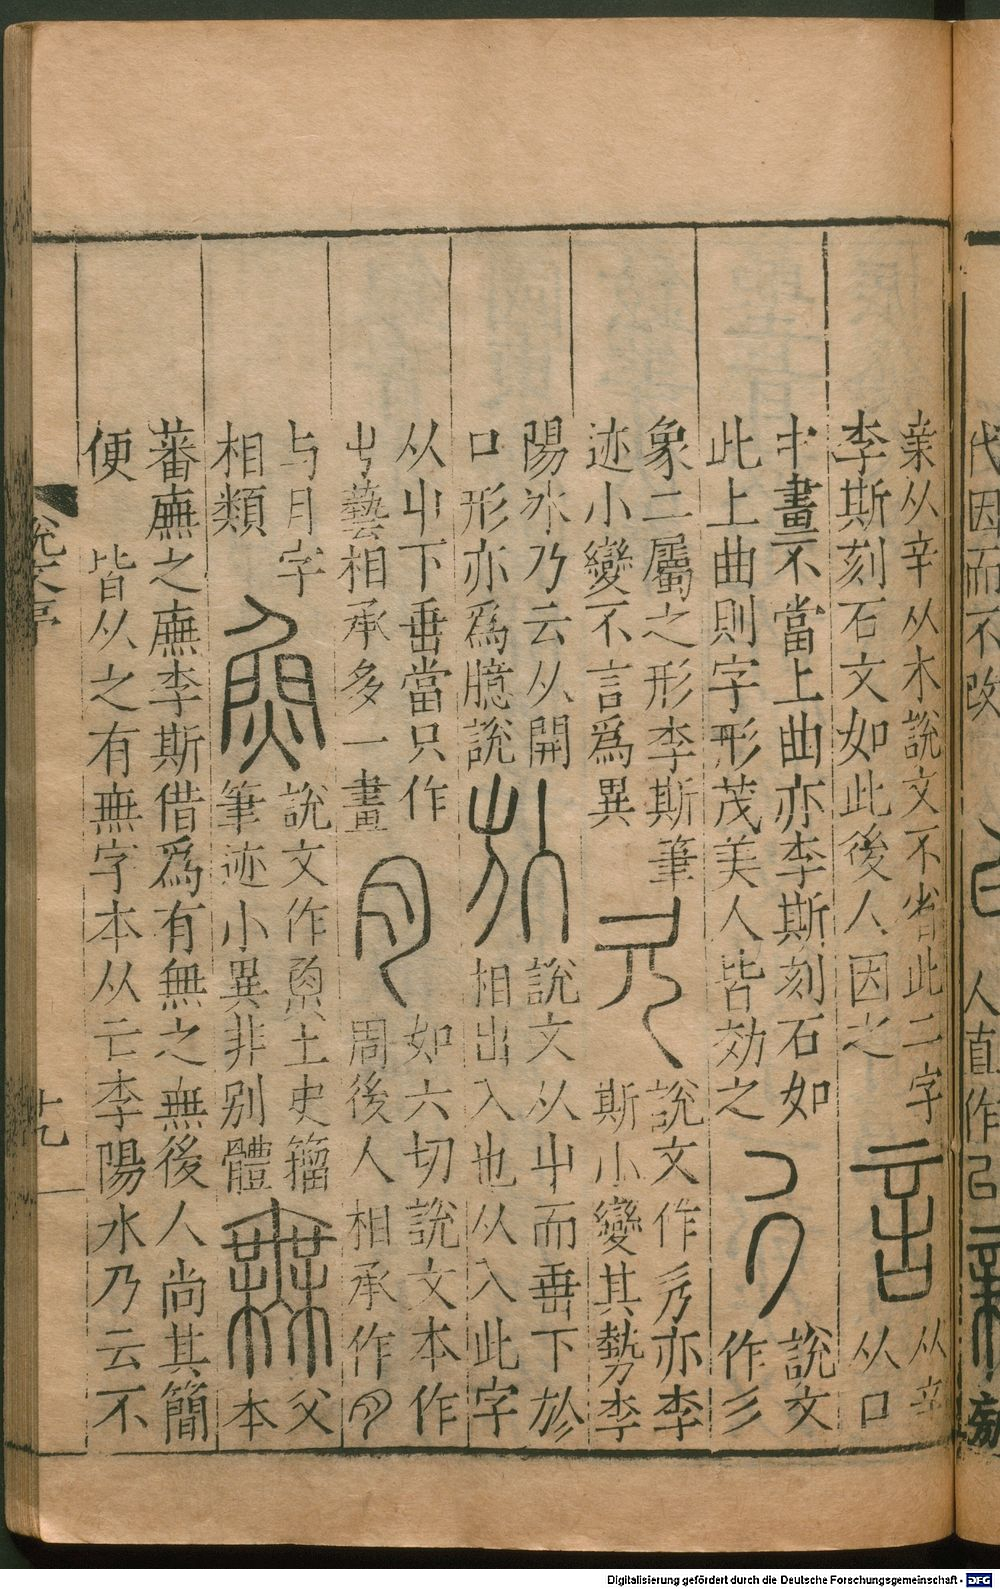 代因而不改
人直作
亲从辛从木說文不省此二字
李斯刻石文如此後人因之
言
从䇂
从口
中畫不當上曲亦李斯刻石如
此上曲則字形茂美人皆効之
說文
作
象二屬之形李斯筆
迹小變不言爲異
說文作𠂢亦李
斯小變其勢李
陽冰乃云从開
口形亦爲臆說
說文从屮而垂下於
相出入也从入此字
从屮下垂當只作
屮藝相承多一畫
肉
如六切說文本作
周後人相承作
与月字
相類
魚
說文作𤋳土史籀
筆迹小異非别體
無
父
本
蕃廡之廡李斯借爲有無之無後人尚其簡
便 皆从之有無字本从亡李陽水乃云不
說文序
十九
Digitalisierung gefördert durch die Deutsche Forschungsgemeinschaft - DFG